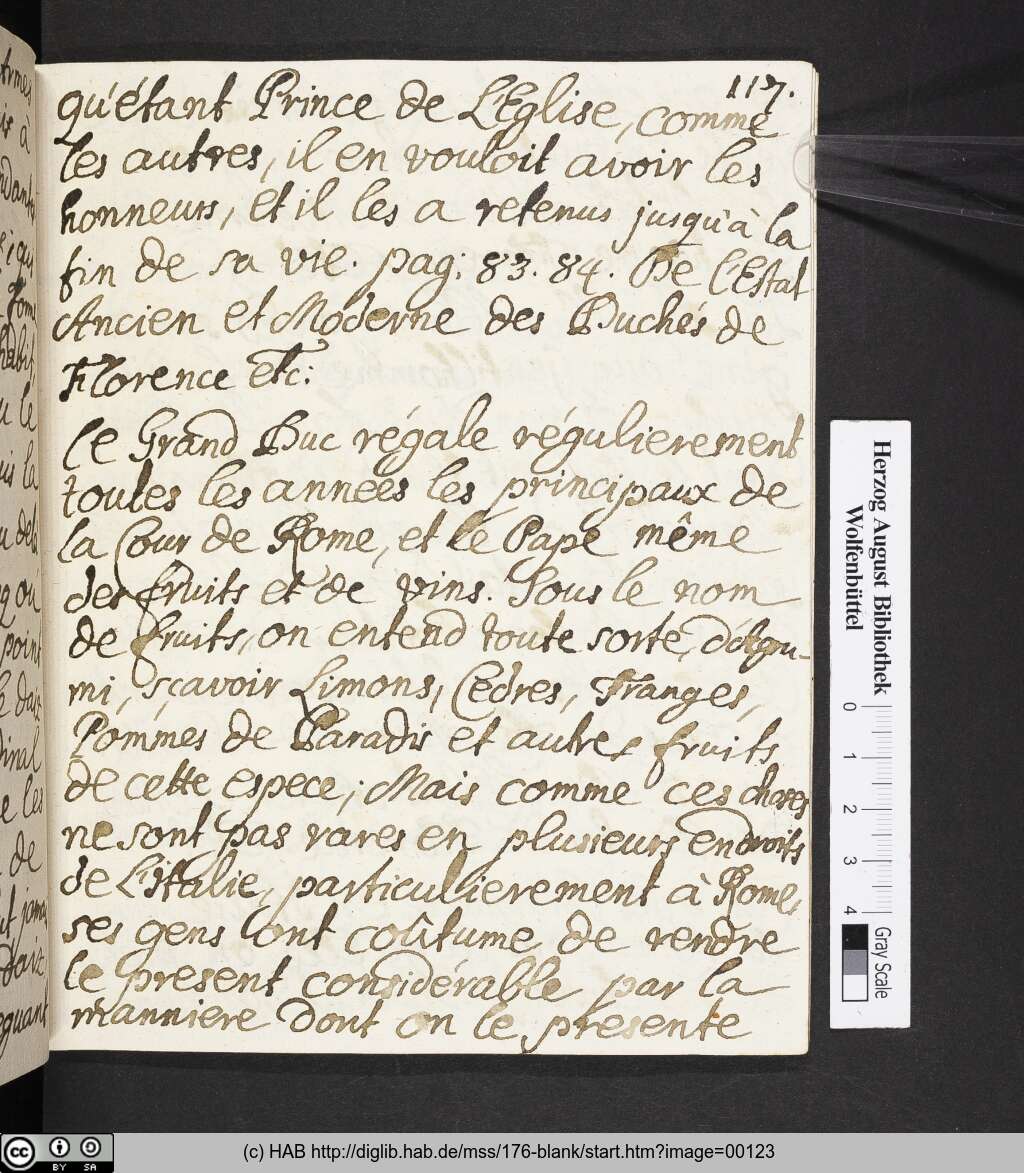 117.
qu'étant Prince de L'Eglise, comme
les autres, il en vouloit avoir les
honneurs, et il les a retenus jusqu'à la
fin de sa vie. pag: 83. 84. De l'Estat
Ancien et Moderne des Duchés de
Florence etc:
Le Grand Duc régale régulierement
toutes les années les principaux de
la Cour de Rome, et le Pape même
des fruits et de vins. Sous le nom
de fruits, on entend toute sorte d'Agru-
mi, sçavoir Limons, Cedres, Franges,
Pommes de Paradis et autres fruits
de cette espece; Mais comme ces choses
ne sont pas rares en plusieurs endroits
de L'Italie, particulierement à Rome,
ses gens ont coûtume de rendre
le present considérable par la
manniere dont on le presente
Armes
à
le
la
où
point
dinal
les
de
Herzog August Bibliothek
Wolfenbüttel
0 1 2 3 4
Gray Scale
cc BY SA
(c) HAB http://diglib.hab.de/mss/176-blank/start.htm?image=00123